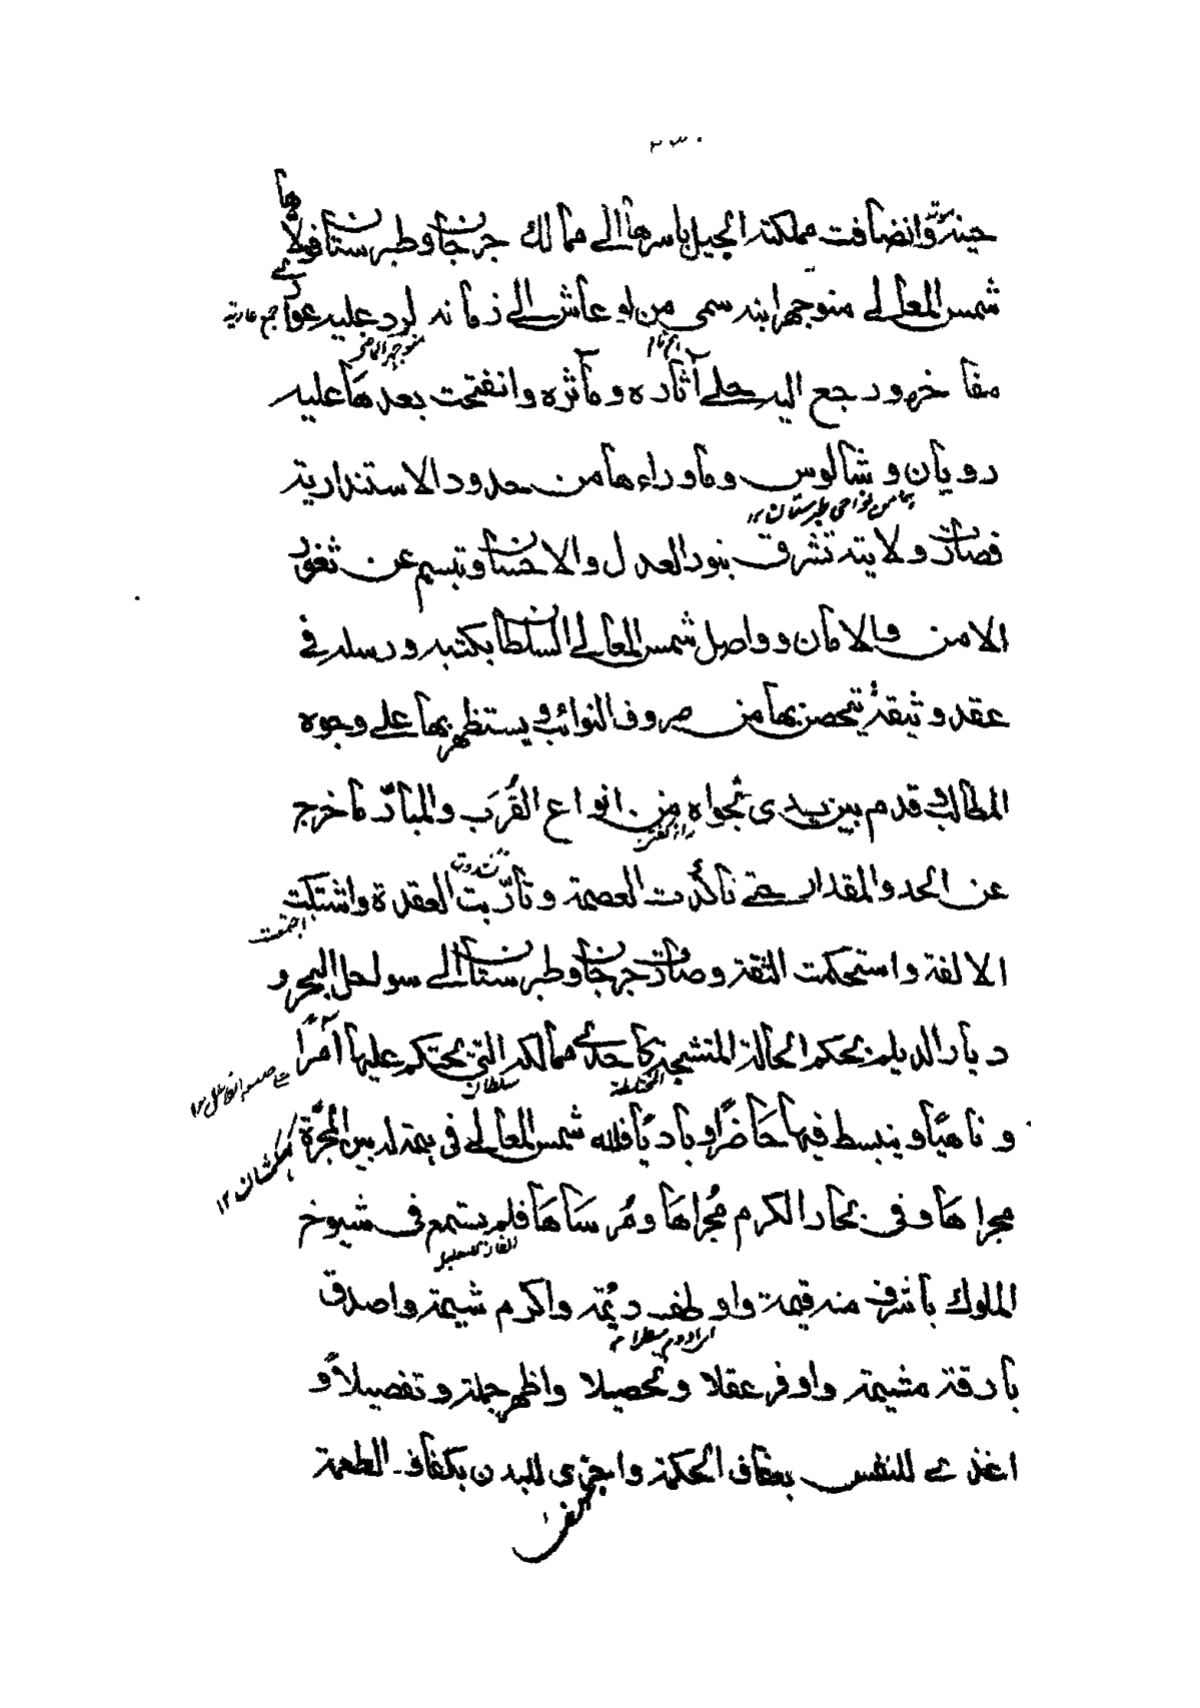 ٢٣٠
حينه وانضافت مملكة الجيل باسرها الى ممالك جرجان وطبرستان فولاها
شمس المعالي منوجهر ابنه سمى من لو عاش الى زمانه لرد عليه عوارى
جمع عارية
مفاخره ورجع اليه حلى آثاره ومآثره وانفتحت بعدها عليه
رويان وشالوس وماوراءها من حدود الاستندارية
هما من نواحى طبرستان ١٢
فصارت ولايته تشرق بنور العدل والاحسان وتبسم عن ثغور
الامن والامان وواصل شمس المعالي السلطان بكتبه ورسله في
عقد وثيقة يتحصن بها من صروف النوائب ويستظهر بها على وجوه
المطالب وقدم بين يدى نجواه من انواع القُرَب والمبارّ ما خرج
عن الحد والمقدار حتى تأكّدت العصمة وتأرّبت العقدة واشتبكت
اجتمعت
الالفة واستحكمت الثقة وصارت جرجان وطبرستان الى سواحل البحر و
ديار الديلم بحكم الحالة المتشجة كاحدى ممالكه التي يحتكم عليها آمرًا
المختلطة
سلطان
وناهيًا وينبسط فيها حاضرًا وباديًا فلله شمس المعالي في همة له بين المجرّة
كهكشان ١٢
مجراها وفي بحار الكرم مُجراها ومُرساها فلم يستمع في شيوخ
الملوك باشرف منه قيمة واوطف ديمة واكرم شيمة واصدق
بارقة مشيمة واوفر عقلا وتحصيلا واظهر جملة وتفصيلاً و
اغذى للنفس بعفاف الحكمة واجزى للبدن بكفاف الطعمة